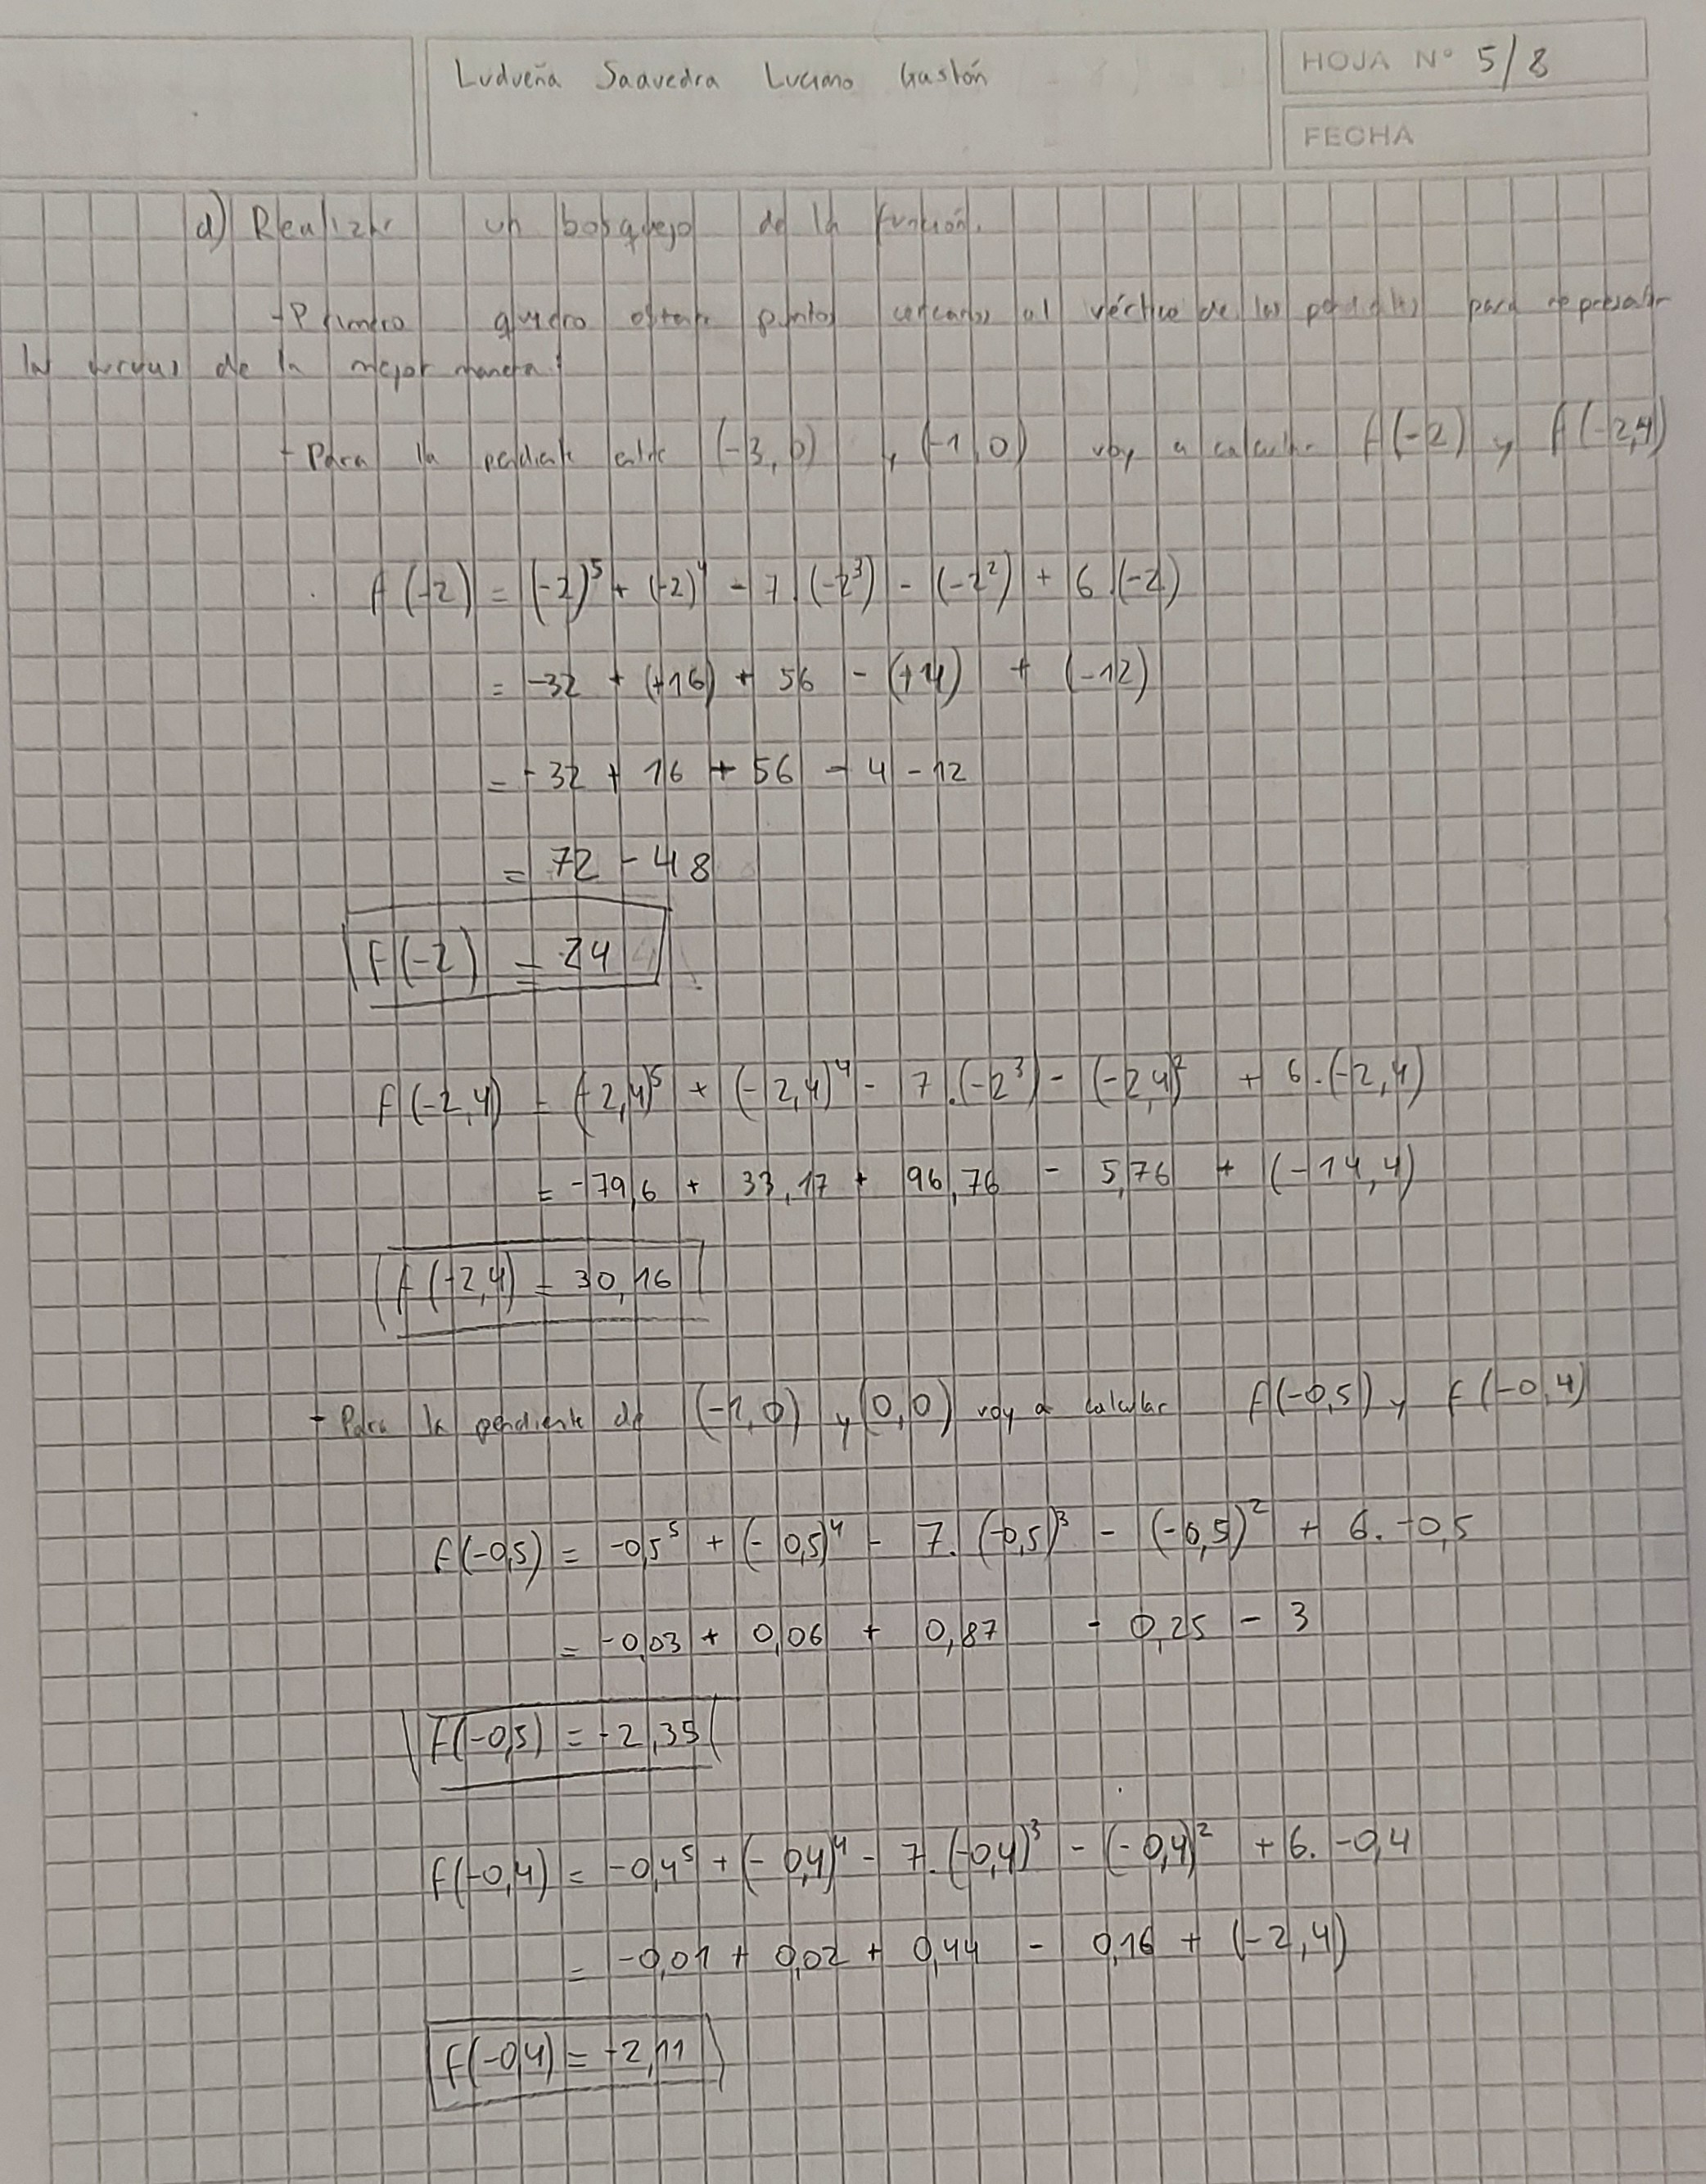 Ludueña Saavedra Luciano Gastón
HOJA N° 5/8
FECHA
d) Realizar un bosquejo de la función.
- Primero quiero obtener puntos cercanos al vértice de las pendientes para representar
las curvas de la mejor manera:
- Para la pendiente entre (-3,0) y (-1,0) voy a calcular f(-2) y f(-2,4)
f(-2) = (-2)⁵ + (-2)⁴ - 7.(-2³) - (-2²) + 6.(-2)
= -32 + (+16) + 56 - (+4) + (-12)
= -32 + 16 + 56 - 4 - 12
= 72 - 48
f(-2) = 24
f(-2,4) = (-2,4)⁵ + (-2,4)⁴ - 7.(-2³) - (-2,4)² + 6.(-2,4)
= -79,6 + 33,17 + 96,76 - 5,76 + (-14,4)
f(-2,4) = 30,16
- Para la pendiente de (-1,0) y (0,0) voy a calcular f(-0,5) y f(-0,4)
f(-0,5) = -0,5⁵ + (-0,5)⁴ - 7.(-0,5)³ - (-0,5)² + 6.-0,5
= -0,03 + 0,06 + 0,87 - 0,25 - 3
f(-0,5) = -2,35
f(-0,4) = -0,4⁵ + (-0,4)⁴ - 7.(-0,4)³ - (-0,4)² + 6.-0,4
= -0,01 + 0,02 + 0,44 - 0,16 + (-2,4)
f(-0,4) = -2,11